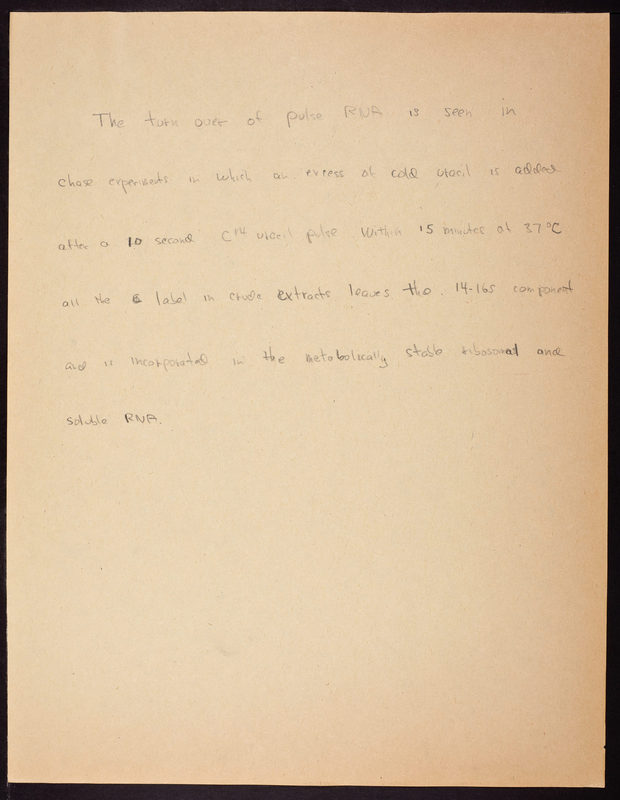 The turn over of pulse RNA is seen in
chase experiments in which an excess of cold uracil is added
after a 10 second C14 uracil pulse. Within 15 minutes at 37°C
all the label in crude extracts leaves the 14-16S component
and is incorporated in the metabolically stable ribosomal and
soluble RNA.